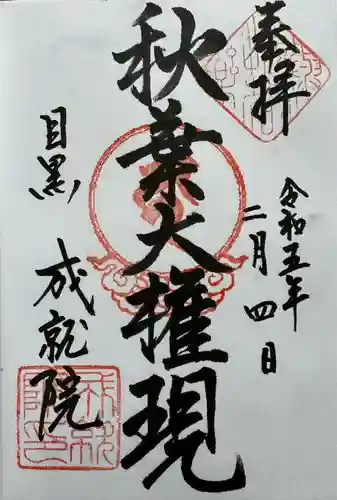 奉拝
令和五年
二月四日
秋葉大権現
目黒
成就院